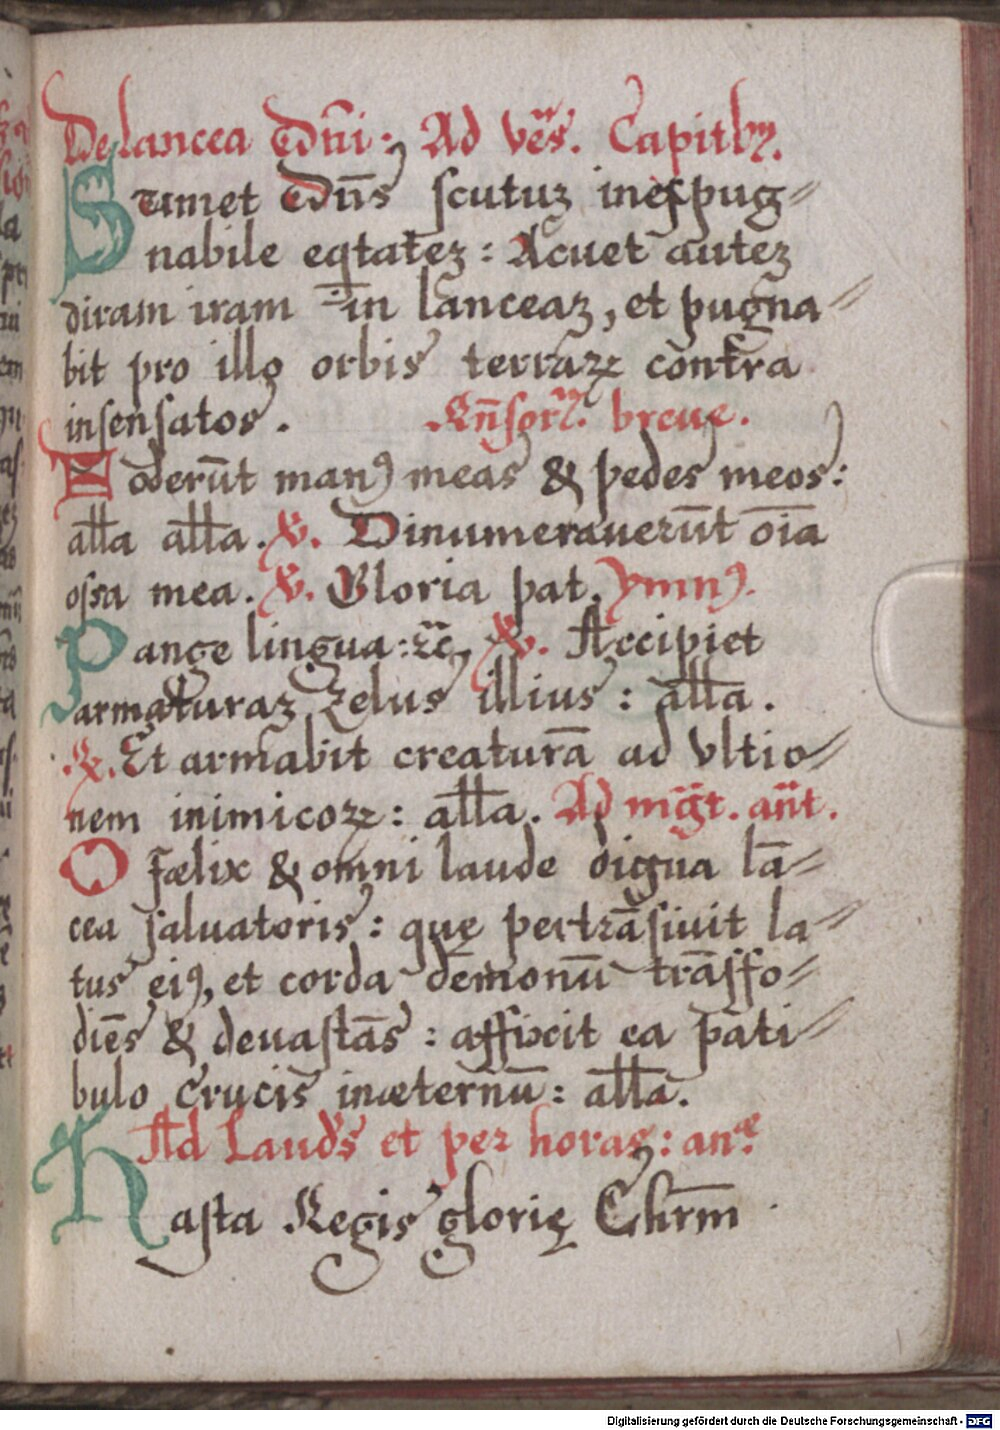 De lancea Dñi: Ad vẽs. Capitlũ.
Sumet Dñs scutuz inexpug=
nabile eqtatez: Acuet autez
diram iram in lanceaz, et pugna=
bit pro illo orbis terraꝝ contra
insensatos. Rñsorᷓ. breue.
Foderũt manꝰ meas & pedes meos:
alla alla. ℣. Dinumerauerũt oĩa
ossa mea. ℣. Gloria pat. ymnꝰ.
Pange lingua: ⁊c̃, ℣. Accipiet
armaturaz zelus illius: alla.
℟. Et armabit creaturã ad vltio=
nem inimicoꝝ: alla. Ad mg̃t. añt.
O fælix & omni laude digna lã=
cea saluatoris: quę pertrãsiuit la=
tus eiꝰ, et corda demonũ trãsfo=
diẽs & deuastãs: affixit ea pati=
bulo Crucis inæternũ: alla.
Ad Lauds et per horas: anᵃ:
Hasta Regis glorię Chrm̃
Digitalisierung gefördert durch die Deutsche Forschungsgemeinschaft - DFG